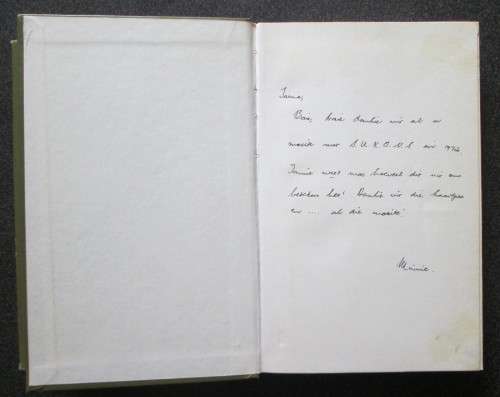 Jannie,
Baie, baie dankie vir al er
moeite met S.U.K.O.V.S vir 1976
Jannie weet nie hoeveel dit vir ons
beteken het! Dankie vir die
en ... al die moeite!
Minnie.